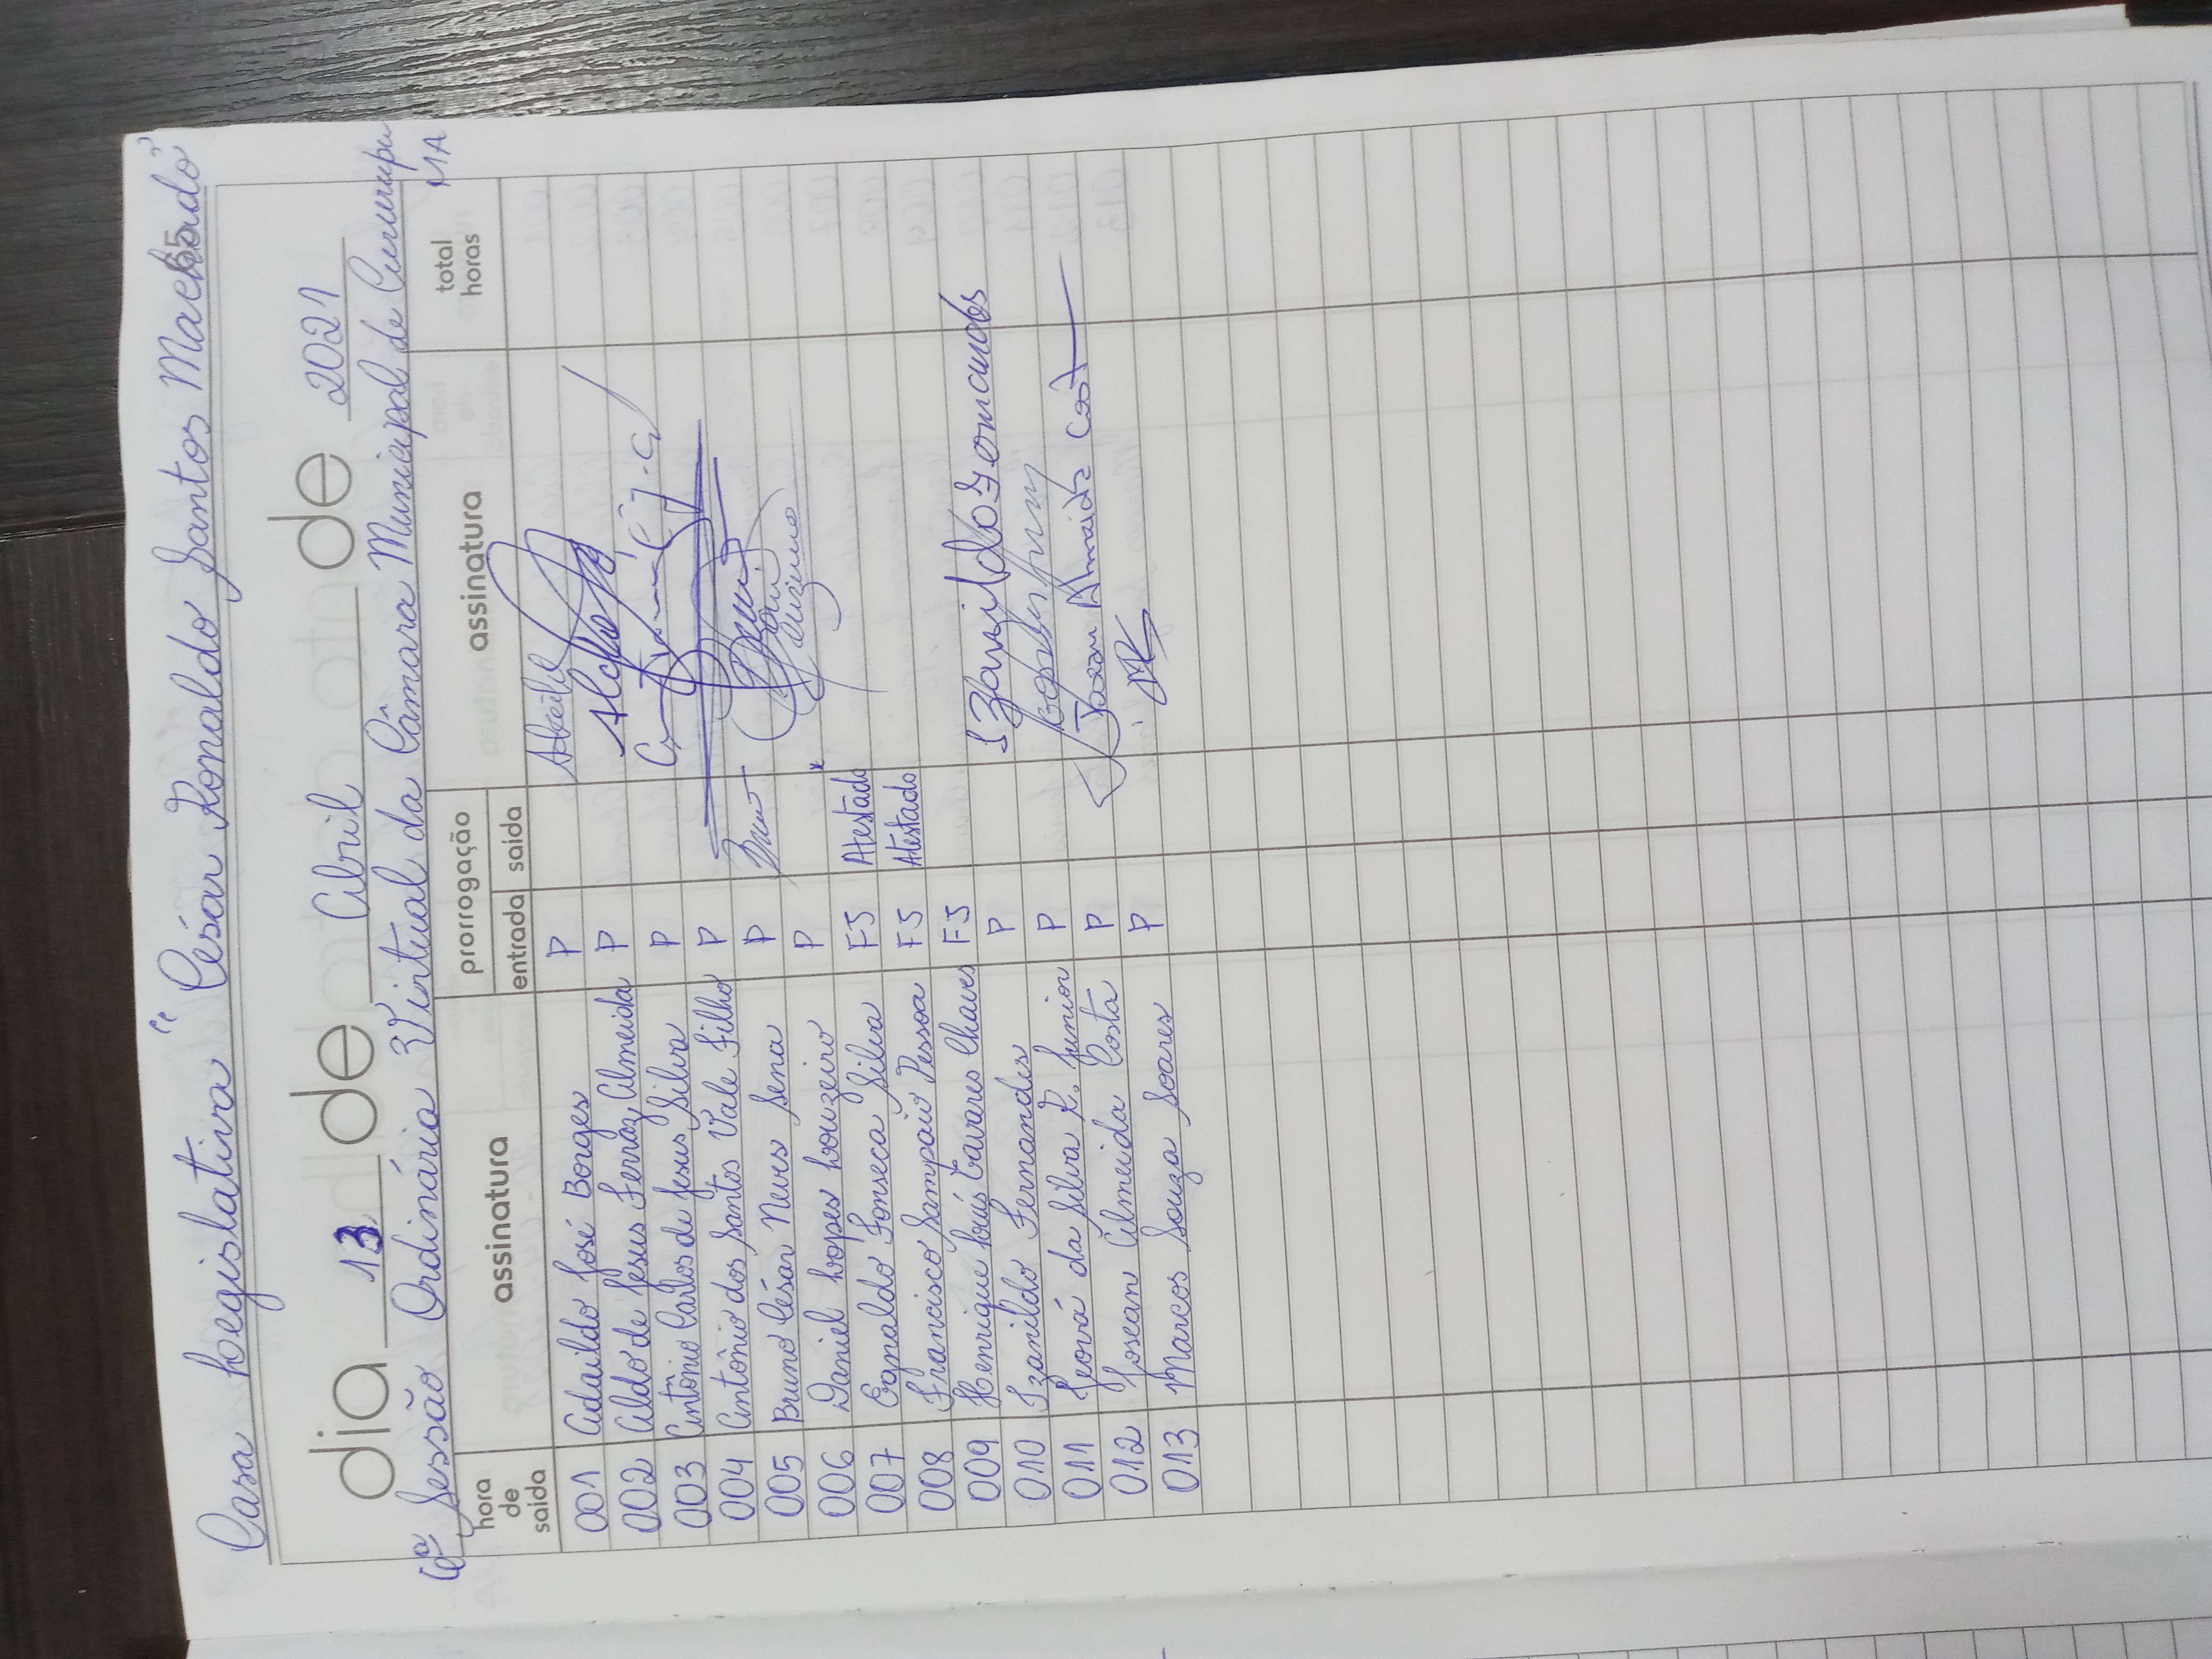 65
Casa Legislativa "César Ronaldo Santos Machado"
dia 13 de Abril de 2021
6ª Sessão Ordinária Virtual da Câmara Municipal de Cururupu
MA
hora de saida assinatura prorrogação entrada saida assinatura total horas
001 Adaildo José Borges P Adaildo
002 Aldo de Jesus Ferraz Almeida P
003 Antônio Carlos de Jesus Silva P
004 Antônio dos Santos Vale Filho P
005 Bruno César Neves Sena P Bruno
006 Daniel Lopes Louzeiro P
007 Egnaldo Fonseca Silva FJ Atestado
008 Francisco Sampaio Pessoa FJ Atestado
009 Henrique Luís Tavares Chaves FJ
010 Izanildo Fernandes P Izanildo Fernandes
011 Jeová da Silva R. Junior P
012 Josean Almeida Costa P Josean Almeida Cost
013 Marcos Souza Soares P